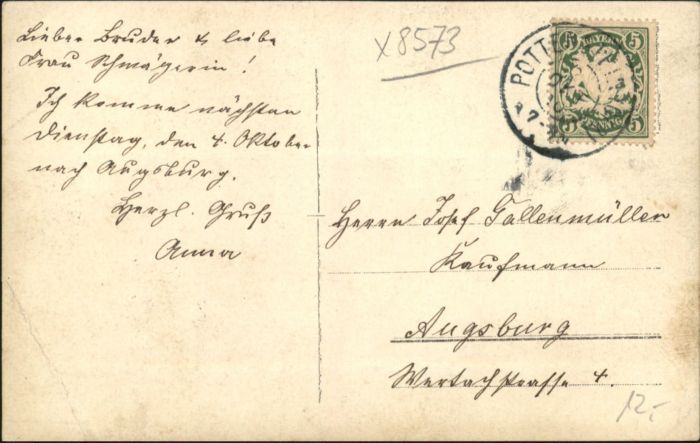 Lieber Bruder & liebe
Frau Schwägerin!
Ich komme nächsten
Dienstag, den 4. Oktober
nach Augsburg.
Herzl. Gruß
Anna
x 8573
5 BAYERN 5
5 PFENNIG 5
POTTE
Herrn Josef Fallenmüller
Kaufmann
Augsburg
Wertachstrasse 4.
12,-